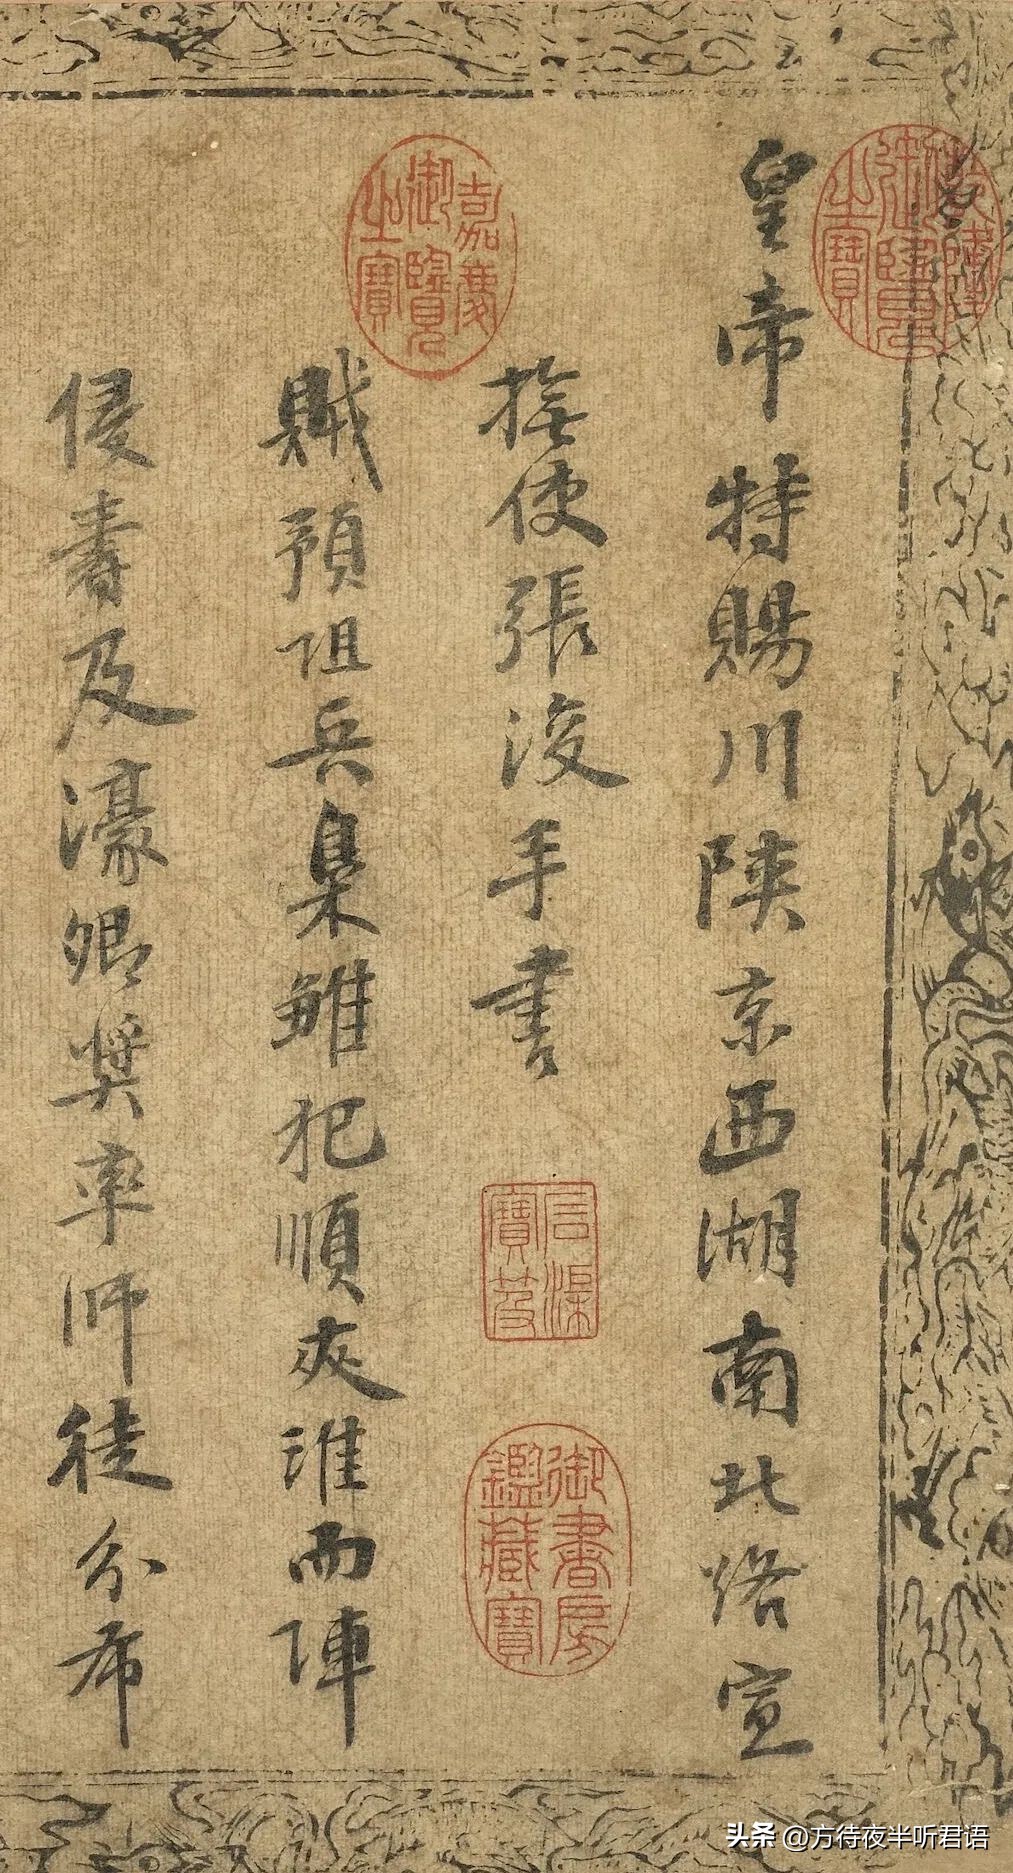 皇帝特賜川陝京西湖南北路宣
撫使張浚手書
賊預阻兵梟雛犯順夾淮而陣
侵壽及濠卿獎率師徒分布
乾隆御覽之寶
嘉慶御覽之寶
石渠寶笈
御書房鑑藏寶
头条 @方待夜半听君语